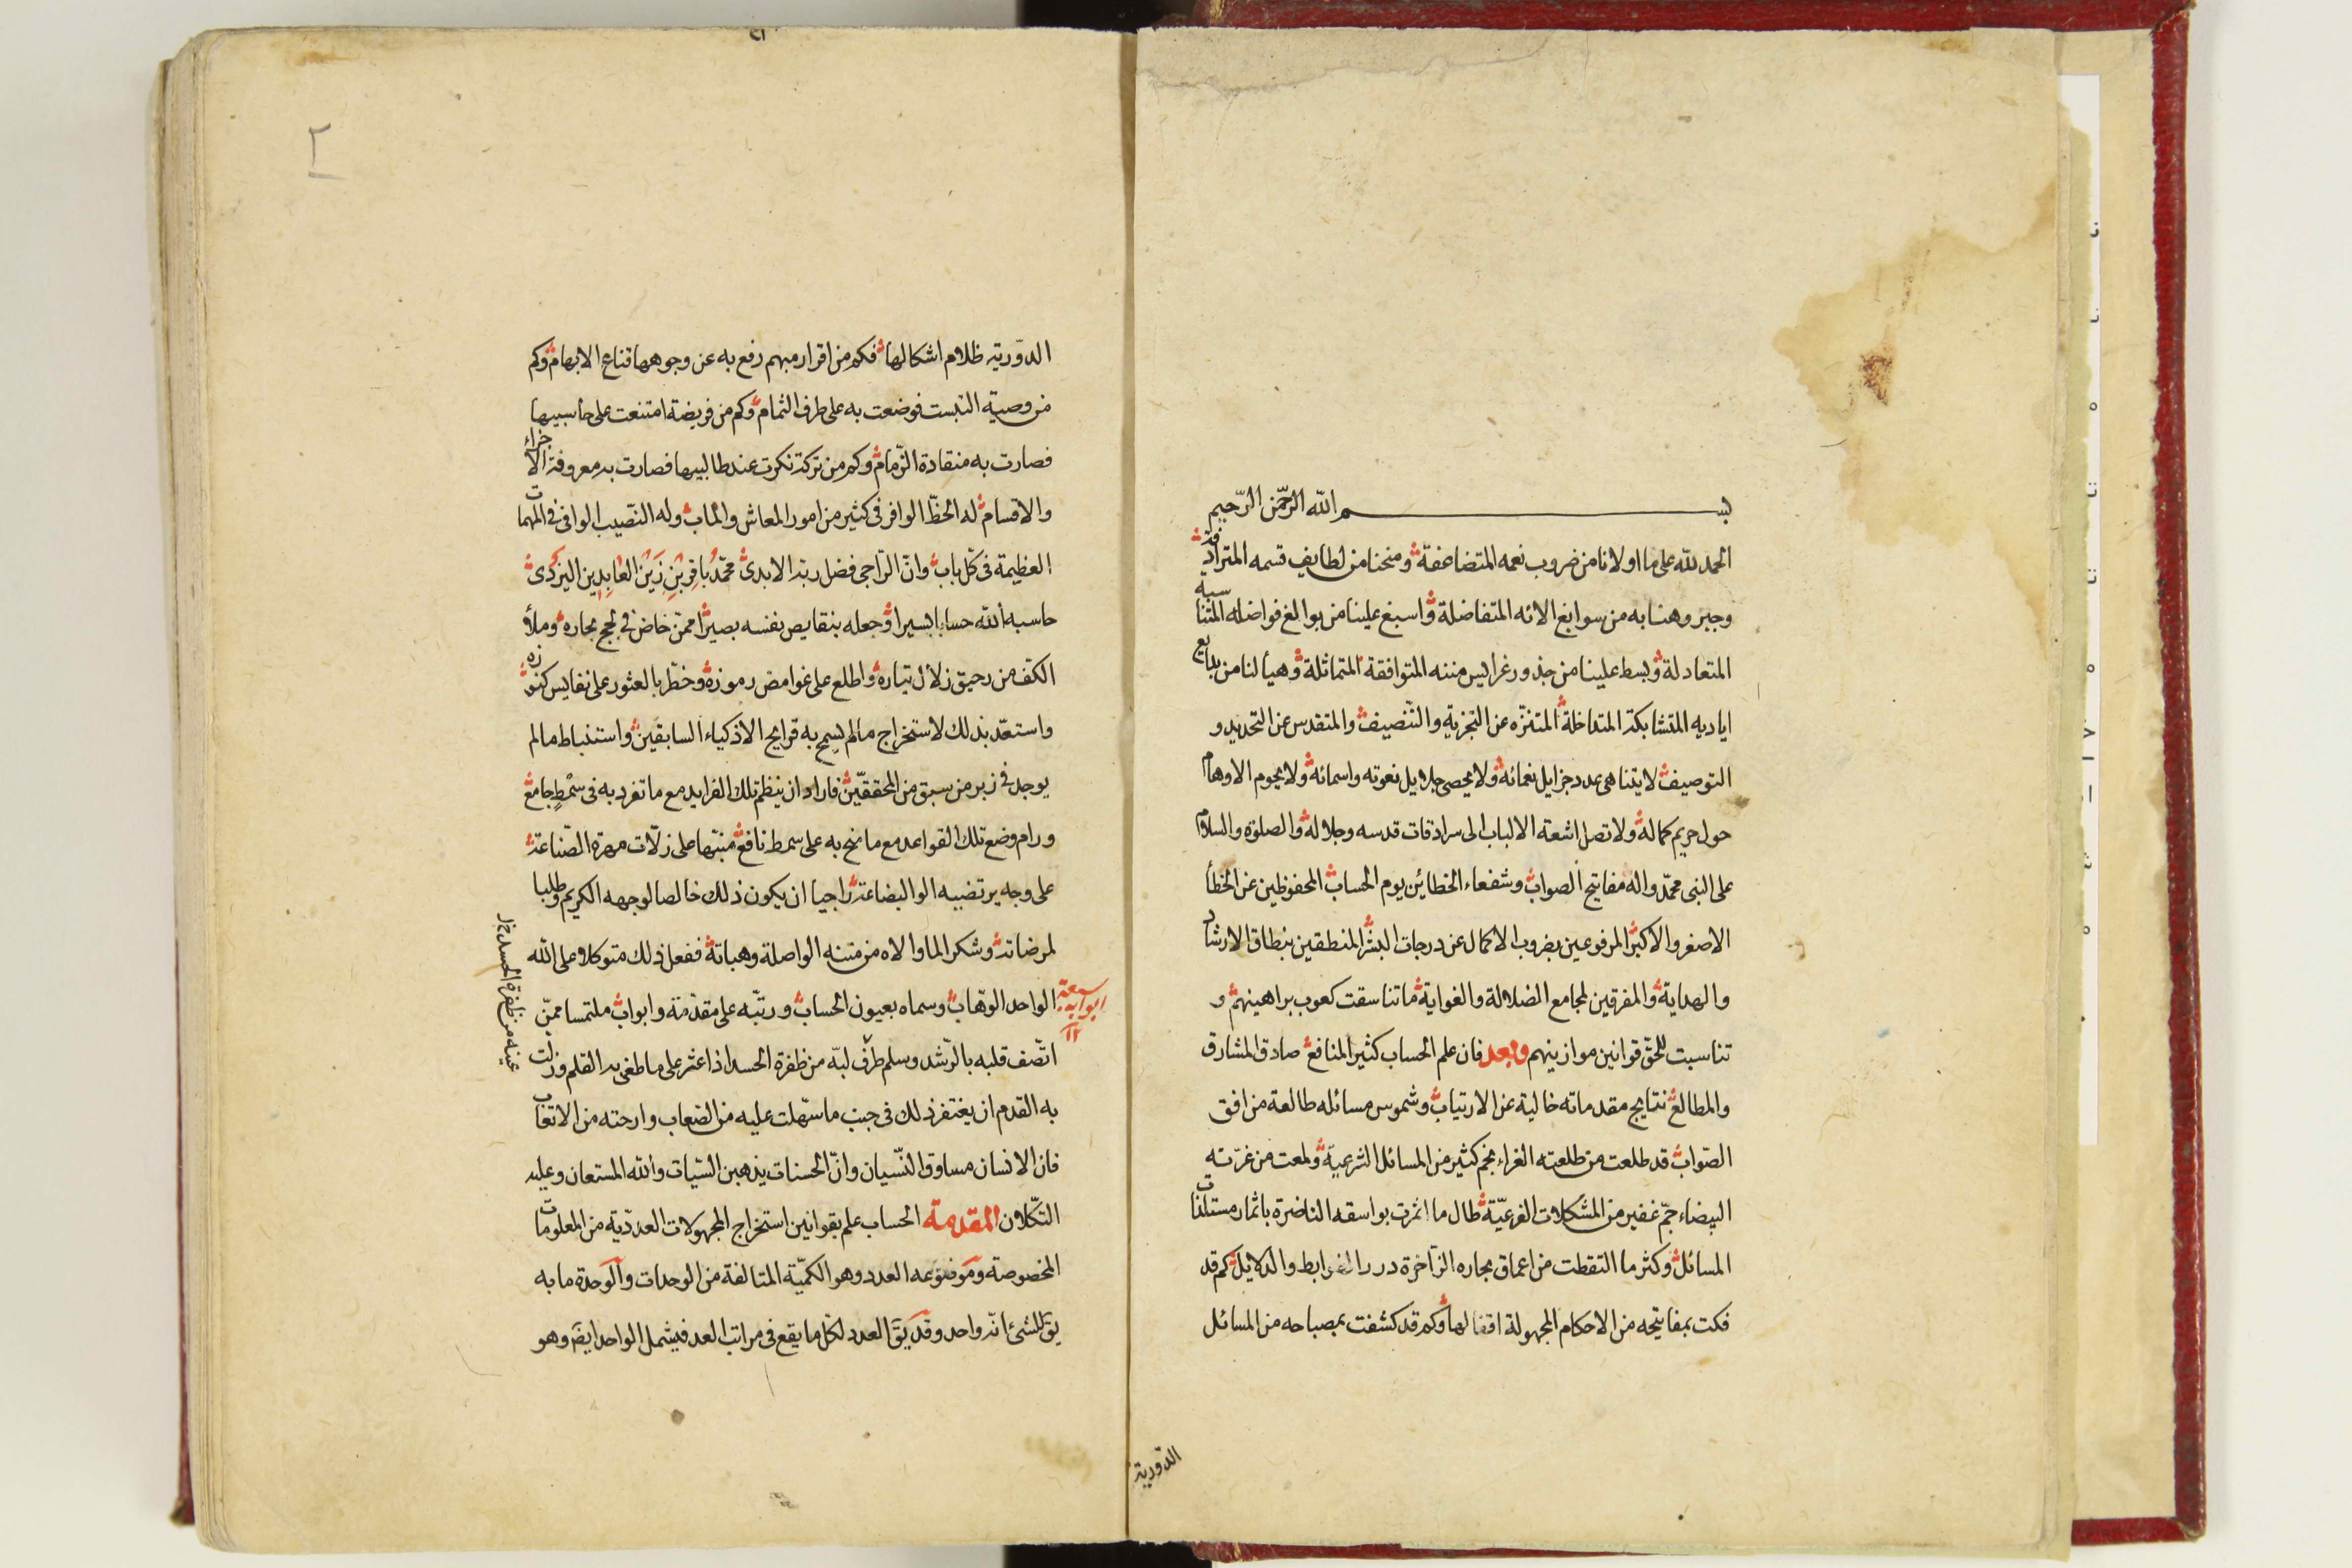 بسم الله الرّحمن الرّحيم
الحمد لله على ما اولانا من ضروب نعمه المتضاعفة ومنحنا من لطايف قسمه المترادفة
وجبر وهننا به من سوابغ الائه المتفاضلة واسبغ علينا من بوالغ فواضله المتناسبة
المتعادلة وبسط علينا من جذور غرايس مننه المتوافقة المتماثلة وهيأ لنا من بدايع
اياديه المتشابكة المتداخلة المتنزّه عن التجزية والتّنصيف والمتقدس عن التحديد و
التوصيف لا يتناهى عدد جزايل نعمائه ولا يحصى جلايل نعوته واسمائه ولا يحوم الاوهام
حول حريم كماله ولا تصل اشعة الالباب الى سرادقات قدسه وجلاله والصلوة والسلام
على النبى محمّد واله مفاتيح الصواب وشفعاء الخطائين يوم الحساب المحفوظين عن الخطأ
الاصغر والاكبر المرفوعين بضروب الاكمال عن درجات البشر المنطقين بنطاق الارشاد
والهداية والمفرقين لمجامع الضلالة والغواية ما تناسقت كعوب براهينهم و
تناسبت للحقّ قوانين موازينهم وبعد فان علم الحساب كثير المنافع صادق المشارق
والمطالع نتايج مقدماته خالية عن الارتياب وشموس مسائله طالعة من افق
الصّواب قد طلعت من طلعته الغراء نجم كثير من المسائل الشرعيّة ولمعت من غرّته
البيضاء جمّ غفير من المشكلات الفرعيّة طال ما اثمرت بواسقه الناضرة باثمار مستلذات
المسائل وكثر ما التقطت من اعماق بحاره الزّاخرة درر الضوابط والدّلايل كم قد
فكت بمفاتيحه من الاحكام المجهولة اقفالها وكم قد كشفت بمصباحه من المسائل
الدّوريّة
٢
الدّوريّة ظلام اشكالها فكم من اقرار مبهم رفع به عن وجوهها قناع الابهام وكم
من وصية التبست فوضعت به على طرف الثمام وكم من فريضة امتنعت على حاسبيها
فصارت به منقادة الزّمام وكم من تركة نكرت عند طالبيها فصارت به معروفة الاجزاء
والاقسام له الحظّ الوافر فى كثير من امور المعاش والمأب وله النّصيب الوافى فى المهمات
العظيمة فى كلّ باب وانّ الرّاجى فضل ربّه الابدىّ محمّد باقر بن زين العابدين اليزدىّ
حاسبه الله حسابا يسيرا وجعله بنقايص نفسه بصيرا ممّن خاض فى لجج بحاره وملأ
الكفّ من رحيق زلال تياره واطلع على غوامض رموزه وخطّر بالعثور على نفايس كنوزه
واستعدّ بذلك لاستخراج ما لم يسمح به قرايح الاذكياء السابقين واستنباط ما لم
يوجد فى زبر من سبق من المحقّقين فاراد ان ينظم تلك الفرايد مع ما تفرد به فى سمط جامع
ورام وضع تلك القواعد مع ما منح به على سمط نافع منبّها على زلّات مهرة الصّناعة
على وجه يرتضيه الوا البضاعة راجيا ان يكون ذلك خالصا لوجهه الكريم وطلبا
لمرضاته وشكرا لما والاه من مننه الواصلة وهباته ففعل ذلك متوكلا على الله
الواحد الوهّاب وسماه بعيون الحساب ورتّبه على مقدّمة وابواب ملتمسا ممّن
اتّصف قلبه بالرّشد وسلم طرف لبّه من ظفرة الحسد اذا عثر على ما طغى به القلم وزلّت
به القدم ان يغتفر ذلك فى جنب ما سهّلت عليه من الصّعاب وارحته من الاتعاب
فان الانسان مساوق النّسيان وانّ الحسنات يذهبن السّيّات والله المستعان وعليه
التّكلان المقدمة الحساب علم بقوانين استخراج المجهولات العدديّة من المعلومات
المخصوصة وموضوعه العدد وهو الكميّة المتالفة من الوحدات والوحدة ما به
يق للشئ انّه واحد وقد يق العدد لكلّ ما يقع فى مراتب العد فيشمل الواحد ايض وهو